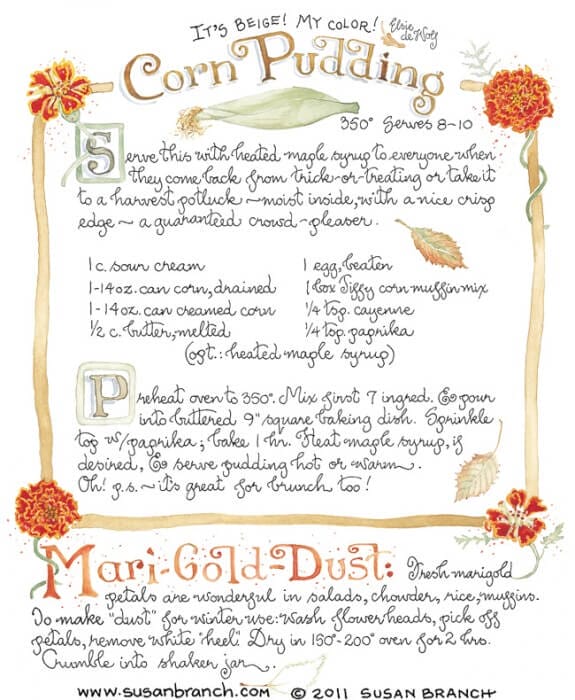 It's BEIGE! MY COLOR! Elsie de Wolf
Corn Pudding
350° Serves 8-10
Serve this with heated maple syrup to everyone when
they come back from trick-or-treating or take it
to a harvest potluck ~ moist inside, with a nice crisp
edge ~ a guaranteed crowd-pleaser.
1 c. sour cream
1-14 oz. can corn, drained
1-14 oz. can creamed corn
1/2 c. butter, melted
1 egg, beaten
1 box Jiffy corn muffin mix
1/4 tsp. cayenne
1/4 tsp. paprika
(opt.: heated maple syrup)
Preheat oven to 350°. Mix first 7 ingred. & pour
into buttered 9" square baking dish. Sprinkle
top w/paprika; bake 1 hr. Heat maple syrup, if
desired, & serve pudding hot or warm.
Oh! p.s. ~ it's great for brunch too!
Mari-Gold-Dust: Fresh marigold
petals are wonderful in salads, chowder, rice, muffins.
To make "dust" for winter use: wash flowerheads, pick off
petals, remove white "heel". Dry in 150°-200° oven for 2 hrs.
Crumble into shaker jar.
www.susanbranch.com © 2011 SUSAN BRANCH